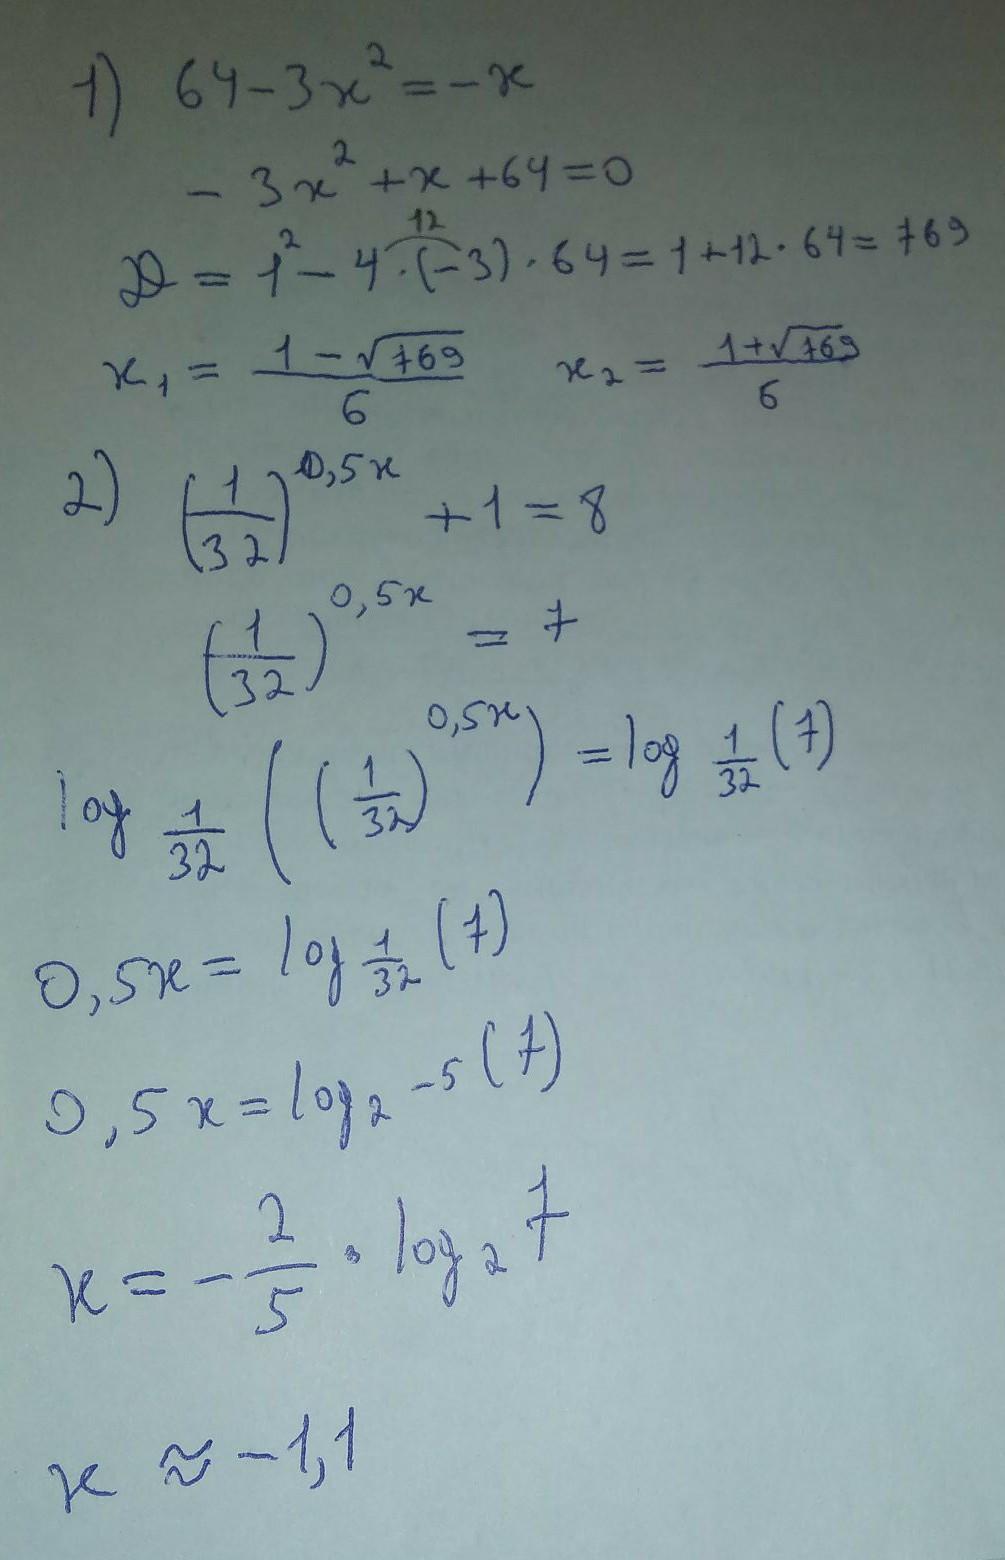 1) 64-3x²=-x
-3x²+x+64=0
12
D=1²-4·(-3)·64=1+12·64=769
x₁=(1-√769)/6 x₂=(1+√769)/6
2) (1/32)^0,5x +1=8
(1/32)^0,5x =7
log 1/32 ((1/32)^0,5x)=log 1/32 (7)
0,5x=log 1/32 (7)
0,5x=log₂-5(7)
x=-2/5·log₂7
x≈-1,1